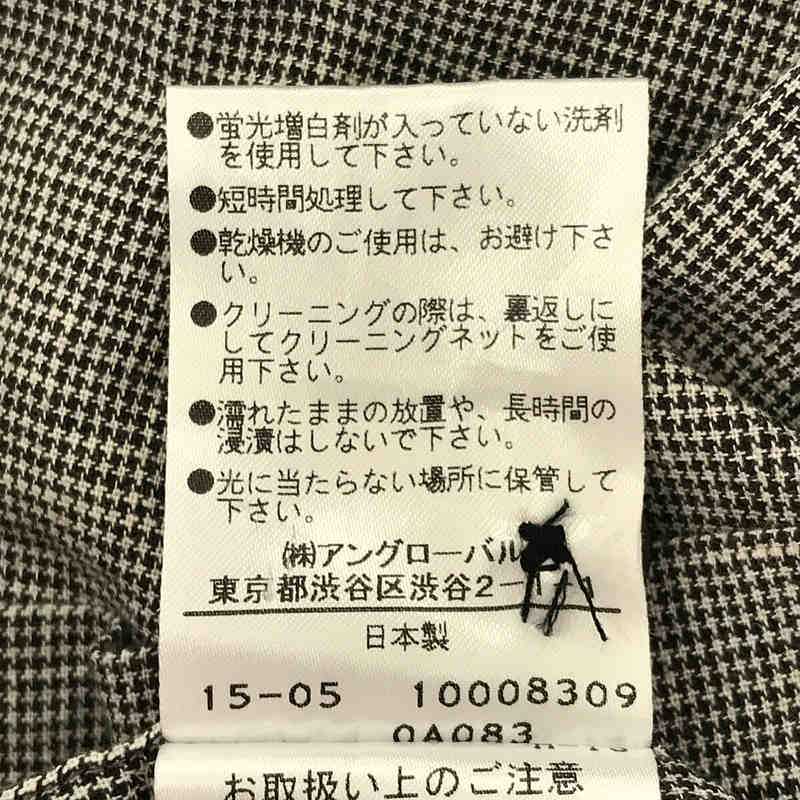 ●蛍光増白剤が入っていない洗剤
を使用して下さい。
●短時間処理して下さい。
●乾燥機のご使用は、お避け下さ
い。
●クリーニングの際は、裏返しに
してクリーニングネットをご使
用下さい。
●濡れたままの放置や、長時間の
浸漬はしないで下さい。
●光に当たらない場所に保管して
下さい。
㈱アングローバル
東京都渋谷区渋谷2−
日本製
15-05 10008309
0A083
お取扱い上のご注意